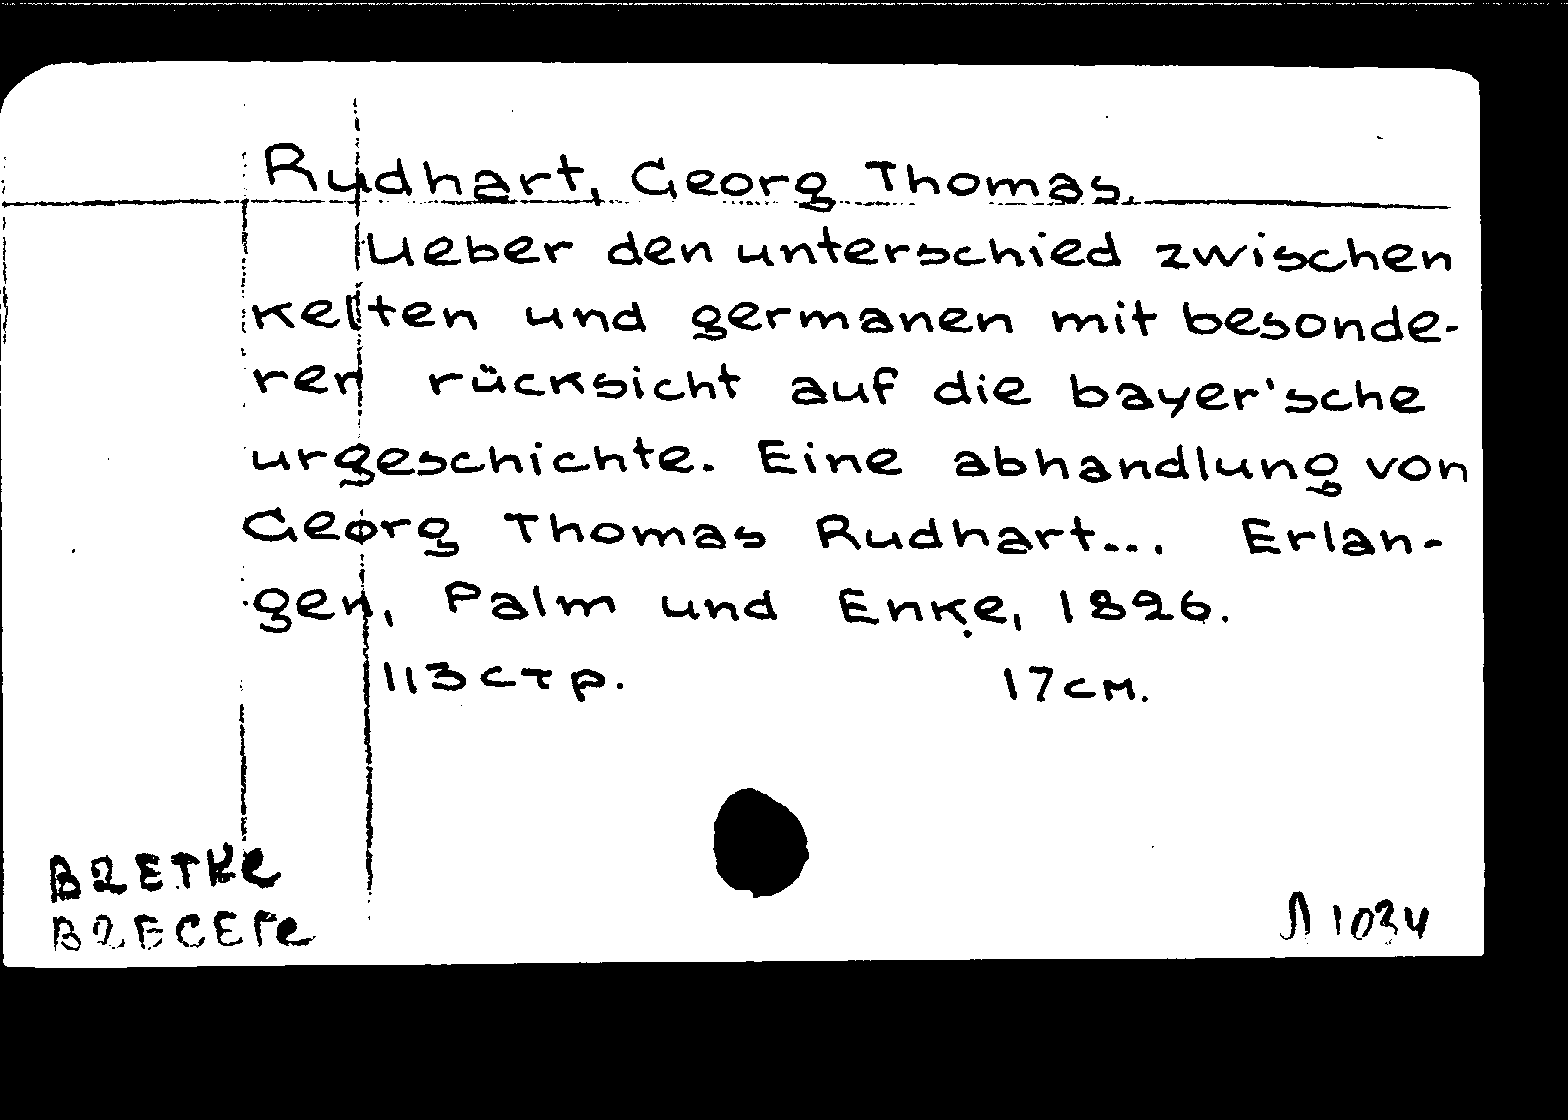 Rudhart, Georg Thomas.
Ueber den unterschied zwischen
kelten und germanen mit besonde-
ren rücksicht auf die bayer'sche
urgeschichte. Eine abhandlung von
Georg Thomas Rudhart... Erlan-
gen, Palm und Enke, 1826.
113 стр. 17 см.
В2ЕТКе
В2ЕСЕГе
Л 1034